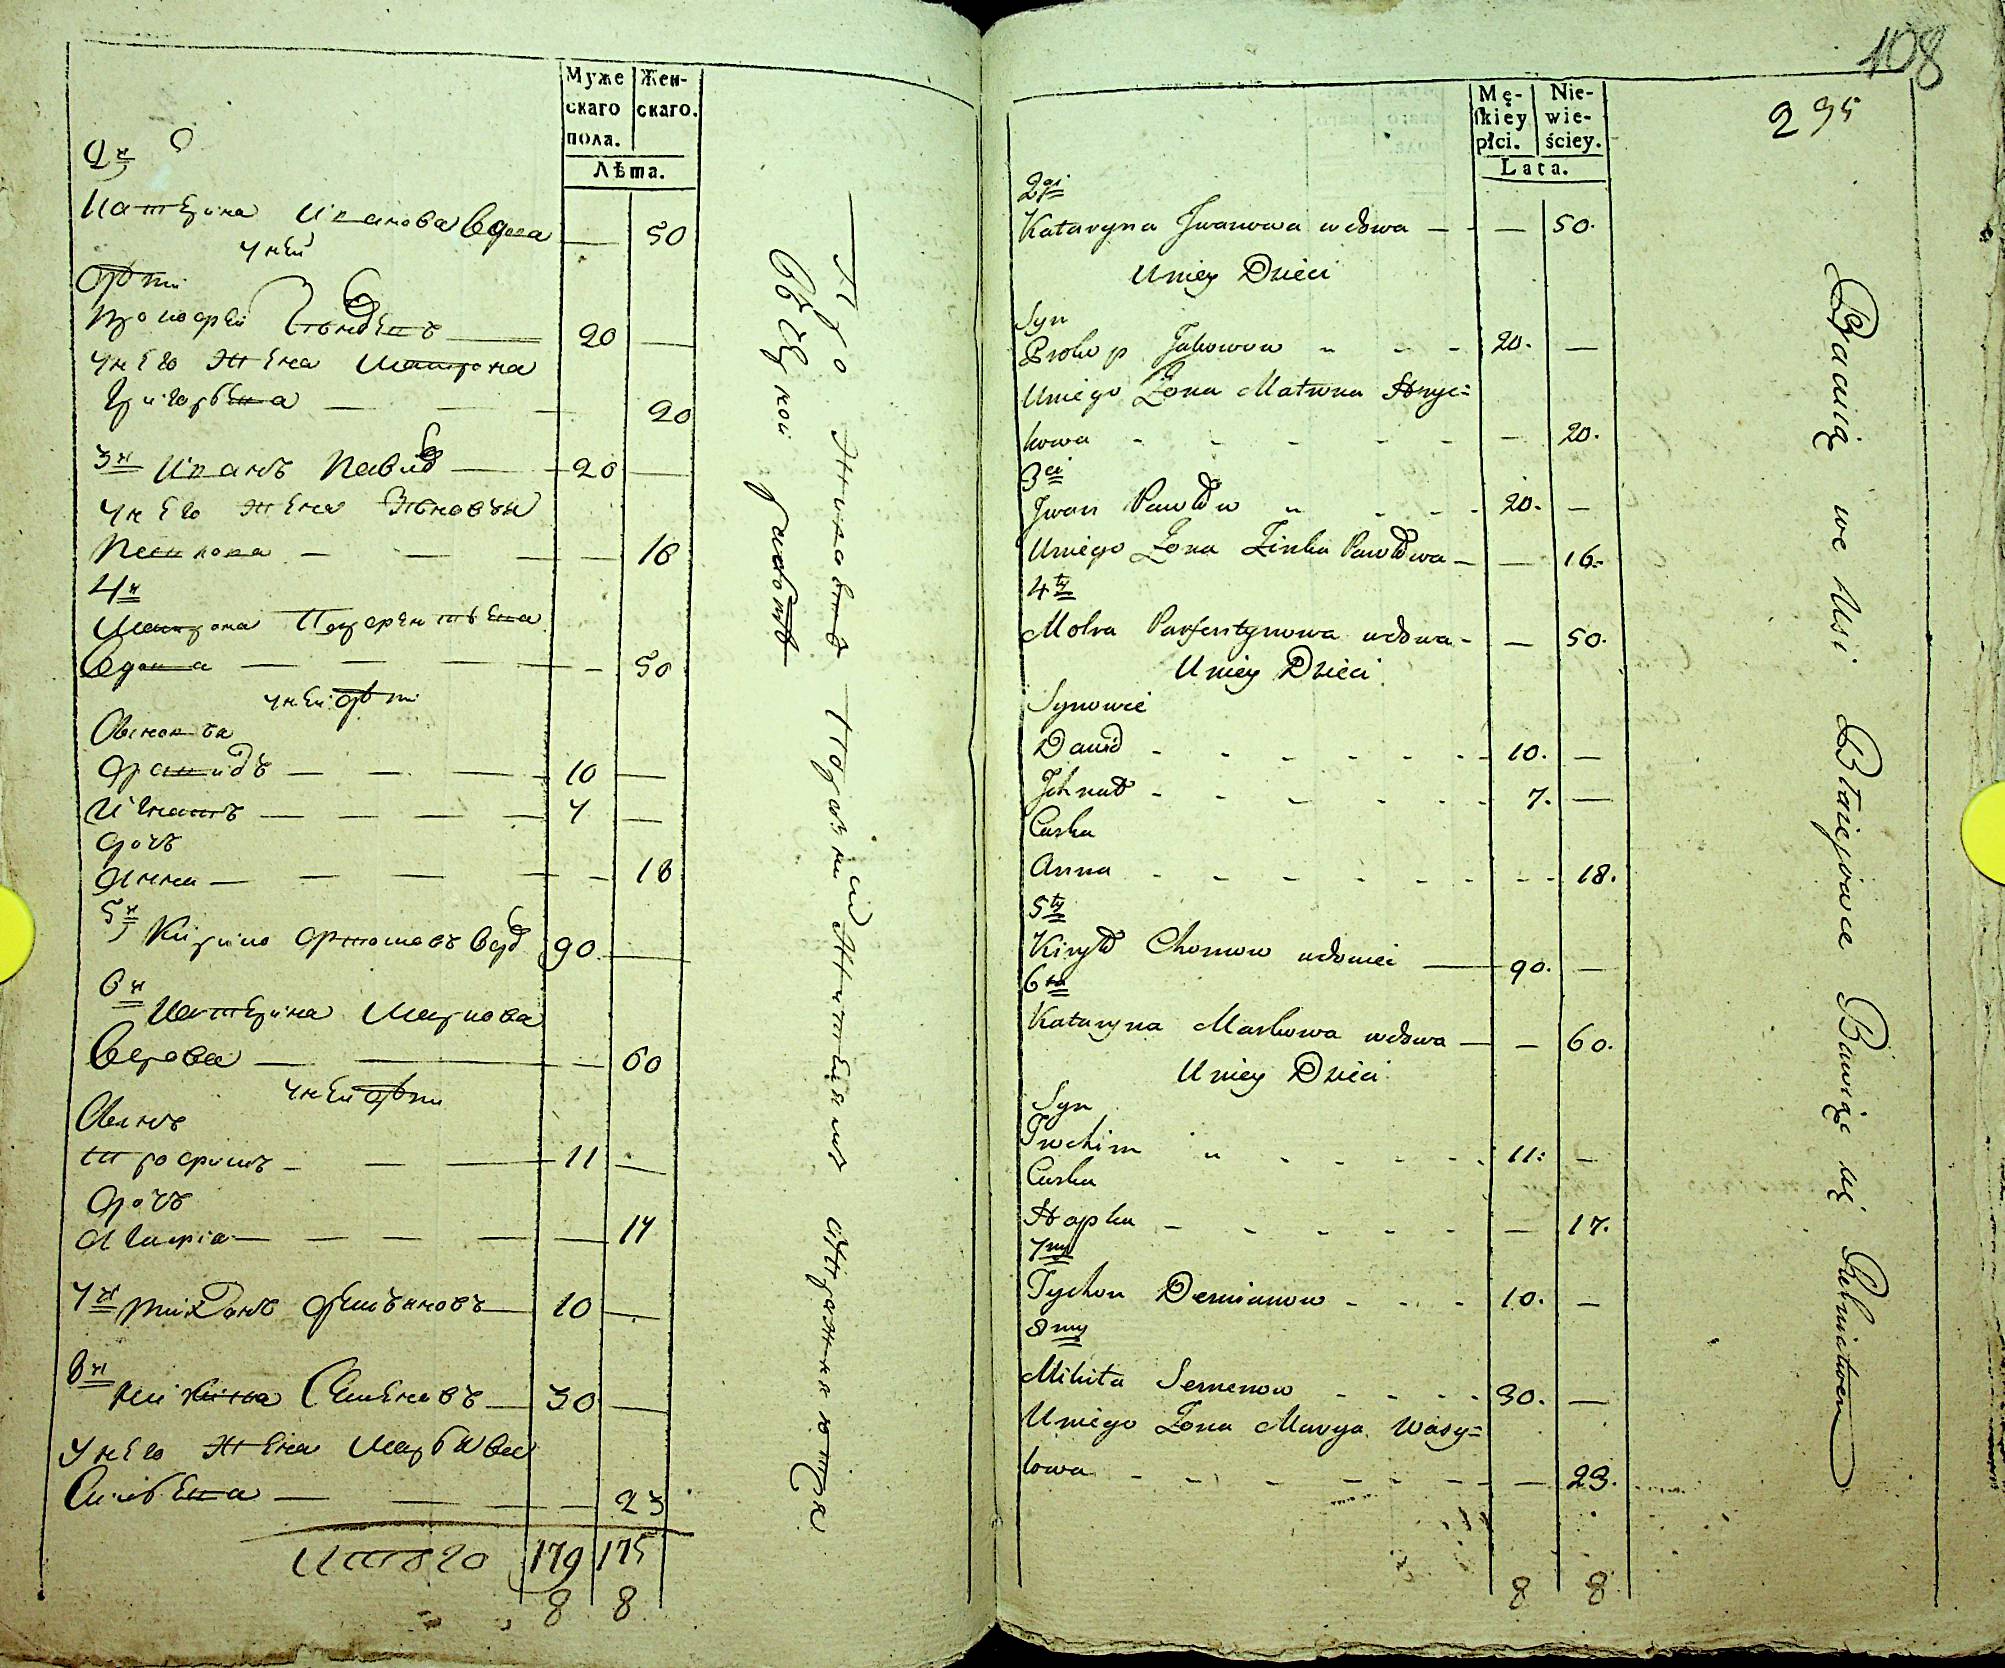 Муже
скаго
пола.
Жен-
скаго.
Лѣта.
2й
Катерина Иванова вдова — 50
у ней
дѣти
Прокофей 20 —
у него жена Матрона
Григорьева — — — 20
3й Иванъ Павлов — 20 —
у него жена Зѣновья
Павлова — — — 16
4й
Матрона Парфентьева
вдова — — — — 50
у ней дѣти
Сыновья
Давидъ — — — 10 —
Игнатъ — — — — 7 —
дочь
Анна — — — — — 18
5й Кирило Артомовъ вдов 90 —
6й Катерина Маркова
вдова — — — 60
у ней дѣти
Сынъ
Трофимъ — — — 11 —
дочь
Агафія — — — — — 17
7й Тихонъ Демьяновъ — 10 —
8й Никита Семеновъ — 30 —
у него жена Марья Ва
сильева — — — — 23
Итого 179 175
8 8
Mę-
skiey
płci.
Nie-
wie-
ściey.
Lata.
108
295
2gi
Kataryna Iwanowa wdowa — — — 50.
U niey Dzieci
Syn
Prokop Jakowow " - - 20. —
U niego Żona Matrona Hryć=
kowa - - - - - — 20.
3ci
Iwan Pawłow " - - - 20. —
U niego Żona Zinka Pawłowa — — 16.
4ty
Motra Parfentynowa wdowa - — 50.
U niey Dzieci
Synowie
Dawid - - - - - - 10. —
Jhnat - - - - - - 7. —
Curka
Anna - - - - - - - 18.
5ty
Kiryło Chomow wdowiec — 90. —
6ty
Kataryna Markowa wdowa — — 60.
U niey Dzieci
Syn
Trochim " - - - - - 11. —
Curka
Hapka - - - - - — 17.
7my
Tychon Demianow - - - 10. —
8my
Mikita Semenow - - - - 30. —
U niego Żona Marya Wasy=
lowa - - - - - - — 23.
8 8
we Wsi Błażejowce Bawiąc się Rolnictwem